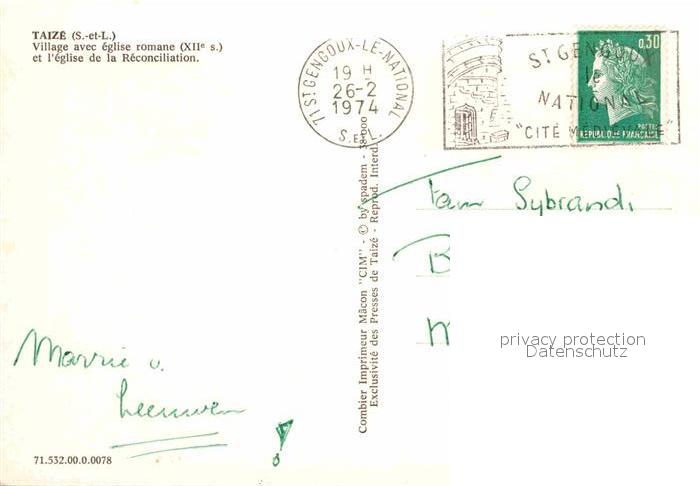 TAIZÉ (S.-et-L.)
Village avec église romane (XIIe s.)
et l'église de la Réconciliation.
71 ST GENGOUX-LE-NATIONAL
19 H
26-2
1974
S. et L.
ST GENGOUX
le
NATIONAL
"CITÉ MÉDIÉVALE"
0,30
POSTES
RÉPUBLIQUE FRANÇAISE
Combier Imprimeur Mâcon "CIM" - © by spadem -
Exclusivité des Presses de Taizé - Reprod. Interd.
Fam Sybrandi
B
M
privacy protection
Datenschutz
Marrie v.
Leeuwen
71.532.00.0.0078